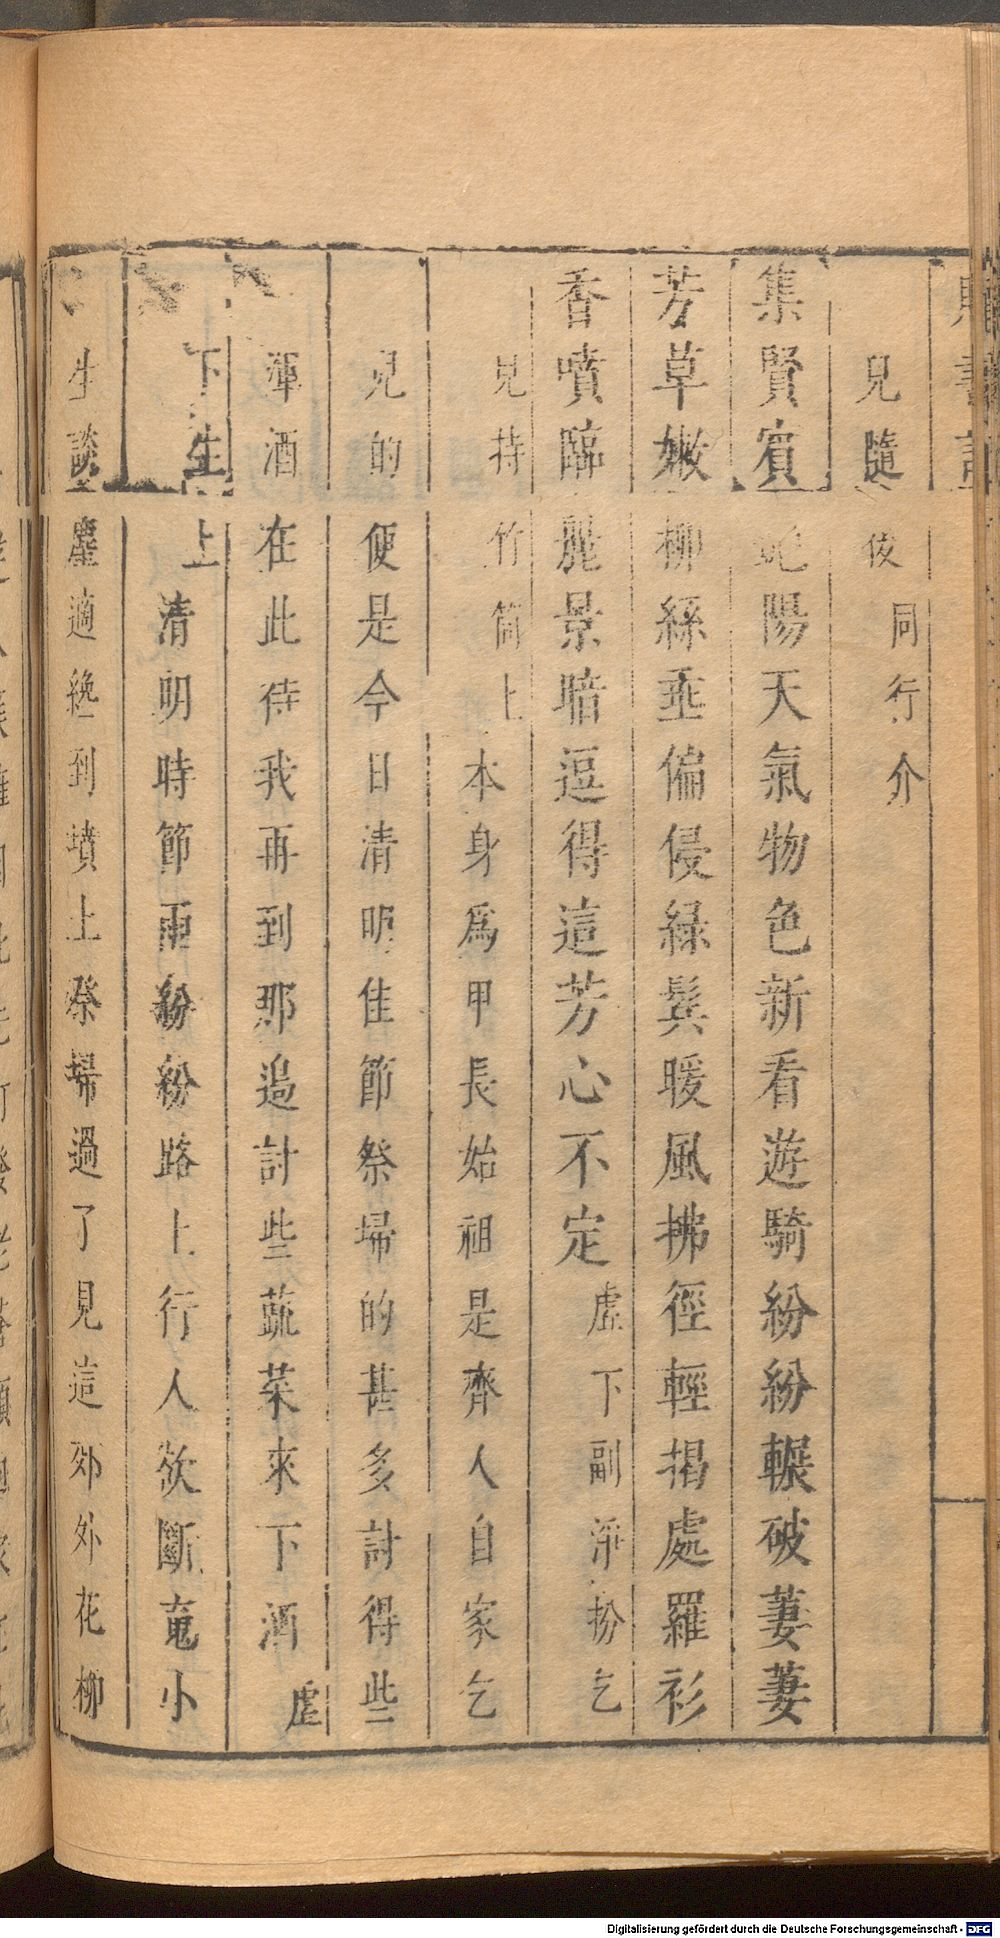 兒隨後同行介
集賢賓 艷陽天氣物色新看遊騎紛紛輾破萋萋
芳草嫩柳絲垂偏侵綠鬓暖風拂徑輕揭處羅衫
香噴臨麗景暗逗得這芳心不定 虛下副淨扮乞
兒持竹筒上 本身為甲長始祖是齊人自家乞
兒的便是今日清明佳節祭掃的甚多討得些
渾酒在此待我再到那邉討些蔬菜來下酒 虛
下生上 清明時節雨紛紛路上行人欲斷䰟小
生談塵適纔到墳上祭掃過了見這郊外花柳
Digitalisierung gefördert durch die Deutsche Forschungsgemeinschaft - DFG